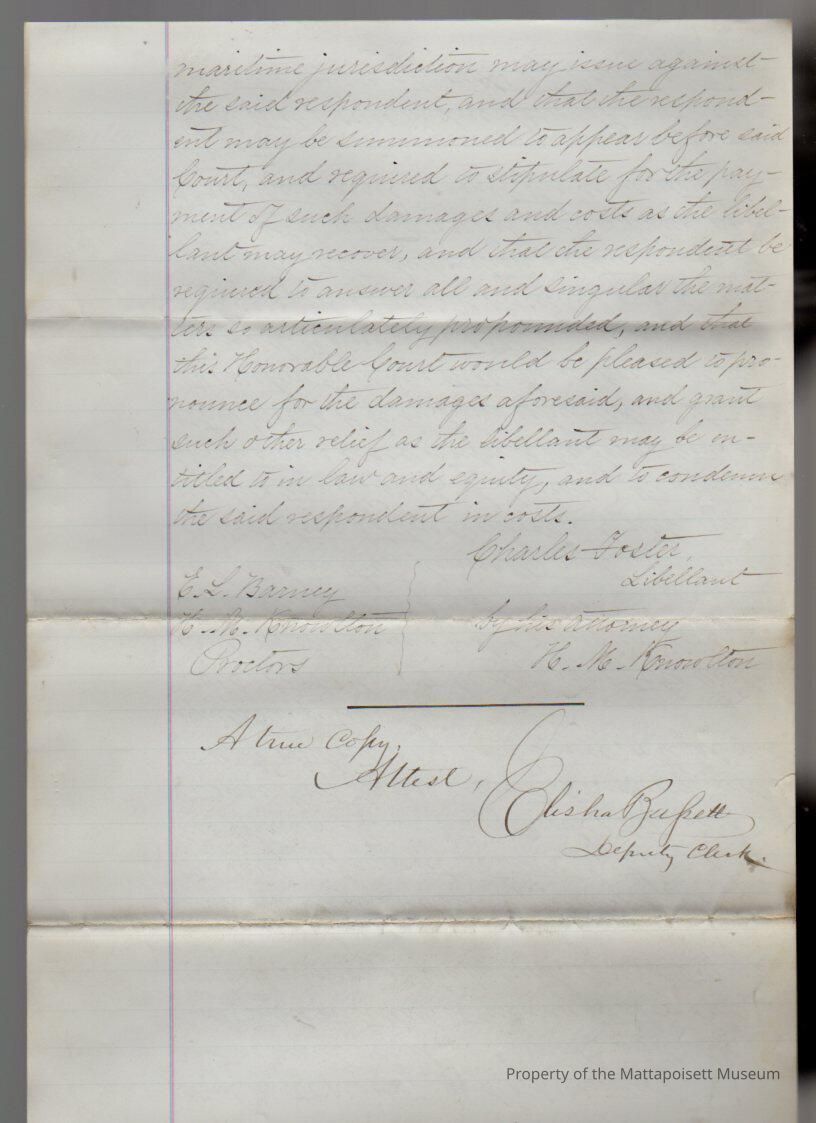 maritime jurisdiction may issue against
the said respondent, and that the respond-
ent may be summoned to appear before said
Court, and required to stipulate for the pay-
ment of such damages and costs as the libel-
lant may recover, and that the respondent be
required to answer all and singular the mat-
ters so articulately propounded, and that
this Honorable Court would be pleased to pro-
nounce for the damages aforesaid, and grant
such other relief as the libellant may be en-
titled to in law and equity, and to condemn
the said respondent in costs.
Charles Foster,
Libellant
by his attorney
H. M. Knowlton
E. L. Barney
H. M. Knowlton
Proctors
A true copy.
Attest,
Elisha Bassett
Deputy Clerk.
Property of the Mattapoisett Museum